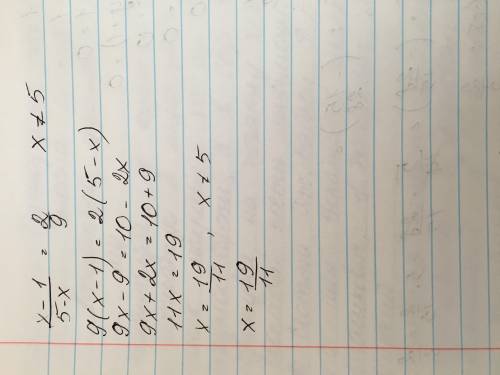 (x-1)/(5-x) = 2/9 x≠5
9(x-1)=2(5-x)
9x-9=10-2x
9x+2x=10+9
11x=19
x=19/11, x≠5
x=19/11